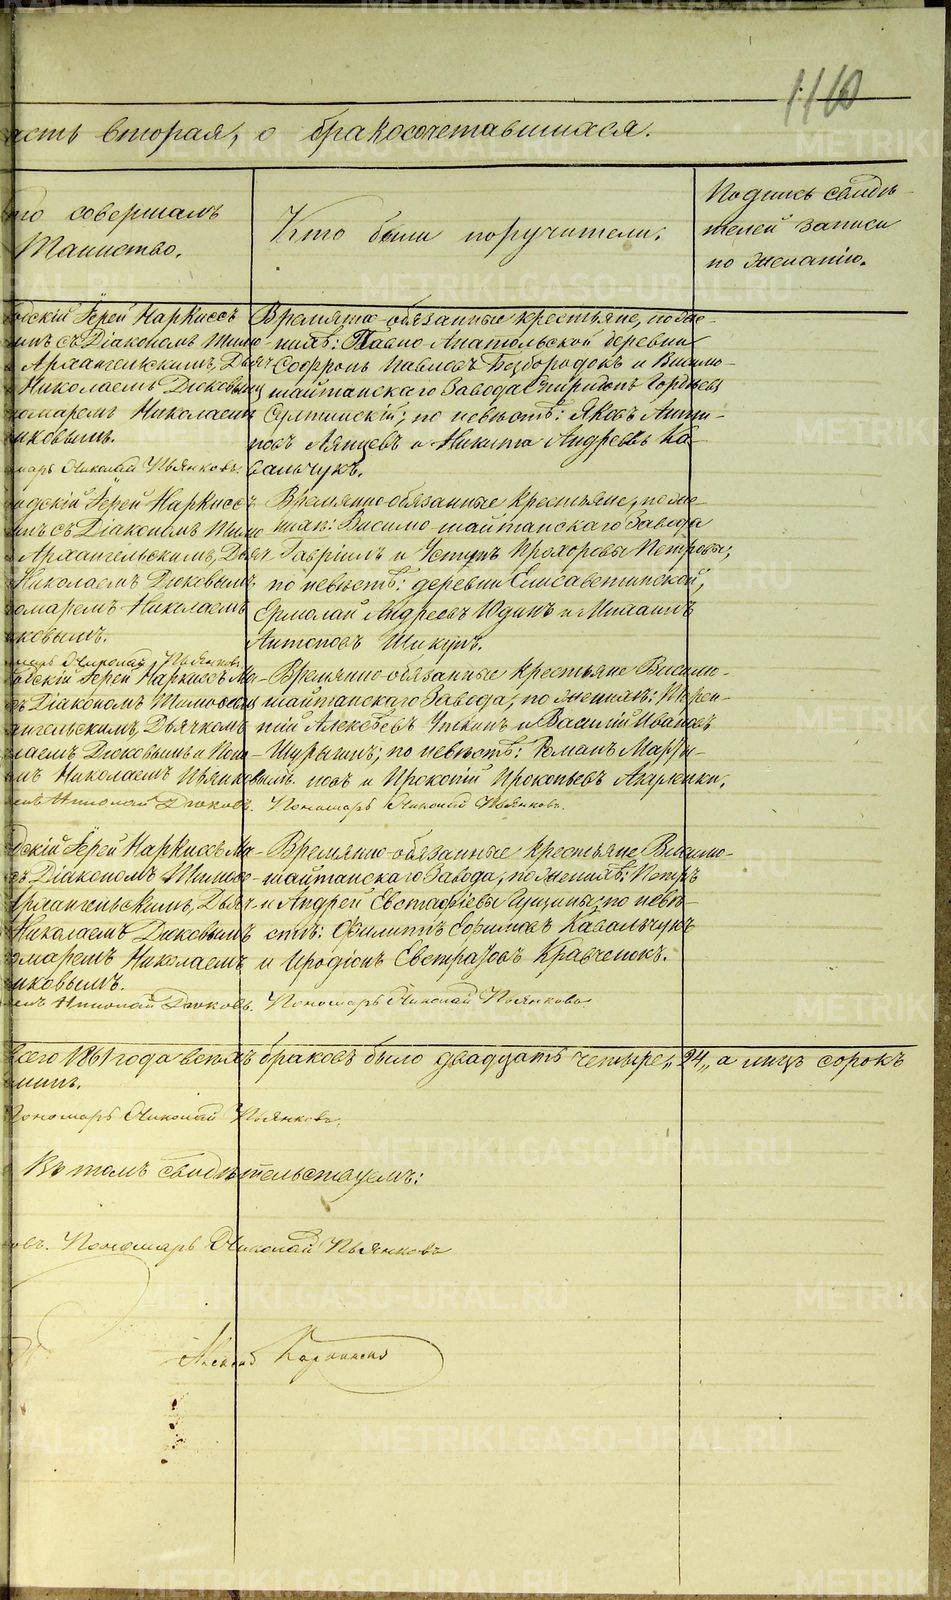 1110
асть вторая, о бракосочетавшихся.
то совершалъ
Таинство.
Кто были поручители.
Подпись свидѣ-
телей записи
по желанію.
одскій Іерей Наркиссъ
инъ съ Діакономъ Тимо
Архангельскимъ, Дьяч
Николаемъ Дюковымъ
номаремъ Николаемъ
нковымъ.
марь Николай Пьянковъ.
Времянно-обязанные крестьяне, по же-
нихѣ: Павло Анатольской деревни
Софронъ Павловъ Безбородокъ и Висимо-
шайтанскаго Завода Спиридонъ Гордѣевъ
по невѣстѣ: Яковъ Анти-
повъ Ляпцевъ и Никита Андреевъ Ка-
вальчукъ.
одскій Іерей Наркиссъ
инъ съ Діакономъ Тимо
Архангельскимъ, Дьяч
Николаемъ Дюковымъ
номаремъ Николаемъ
нковымъ.
марь Николай Пьянковъ.
Времянно-обязанные крестьяне, по же-
нихѣ: Висимо-шайтанскаго Завода
Гавріилъ и Устинъ Прохоровы Петровы;
по невѣстѣ: деревни Елисаветинской,
Ермолай Андреевъ Юдинъ и Михаилъ
Антоновъ Шикунъ.
одскій Іерей Наркиссъ Ма-
съ Діакономъ Тимофе
ангельскимъ, Дьячкомъ
лаемъ Дюковымъ и Поно-
мъ Николаемъ Пьянковымъ.
Николай Дюковъ. Пономарь Николай Пьянковъ.
Времянно-обязанные крестьяне Висимо-
шайтанскаго Завода, по женихѣ:
Алексѣевъ Уткинъ и Василій Ивановъ
по невѣстѣ: Романъ Марты-
новъ и Прокопій Прокопьевъ
одскій Іерей Наркиссъ Ма-
съ Діакономъ Тимофе-
Архангельскимъ, Дьяч-
Николаемъ Дюковымъ
номаремъ Николаемъ
нковымъ.
Николай Дюковъ. Пономарь Николай Пьянковъ.
Времянно-обязанные крестьяне Висимо-
шайтанскаго Завода, по женихѣ: Петръ
и Андрей Евстафіевы по невѣ-
стѣ: Филиппъ Ефимовъ Кавальчукъ
и Иродіонъ Евстратовъ Кравченокъ.
сего 1861 года всѣхъ браковъ было двадцать четыре „24„ а лицъ сорокъ
мь.
Пономарь Николай Пьянковъ.
Въ томъ свидѣтельствуемъ:
овъ. Пономарь Николай Пьянковъ